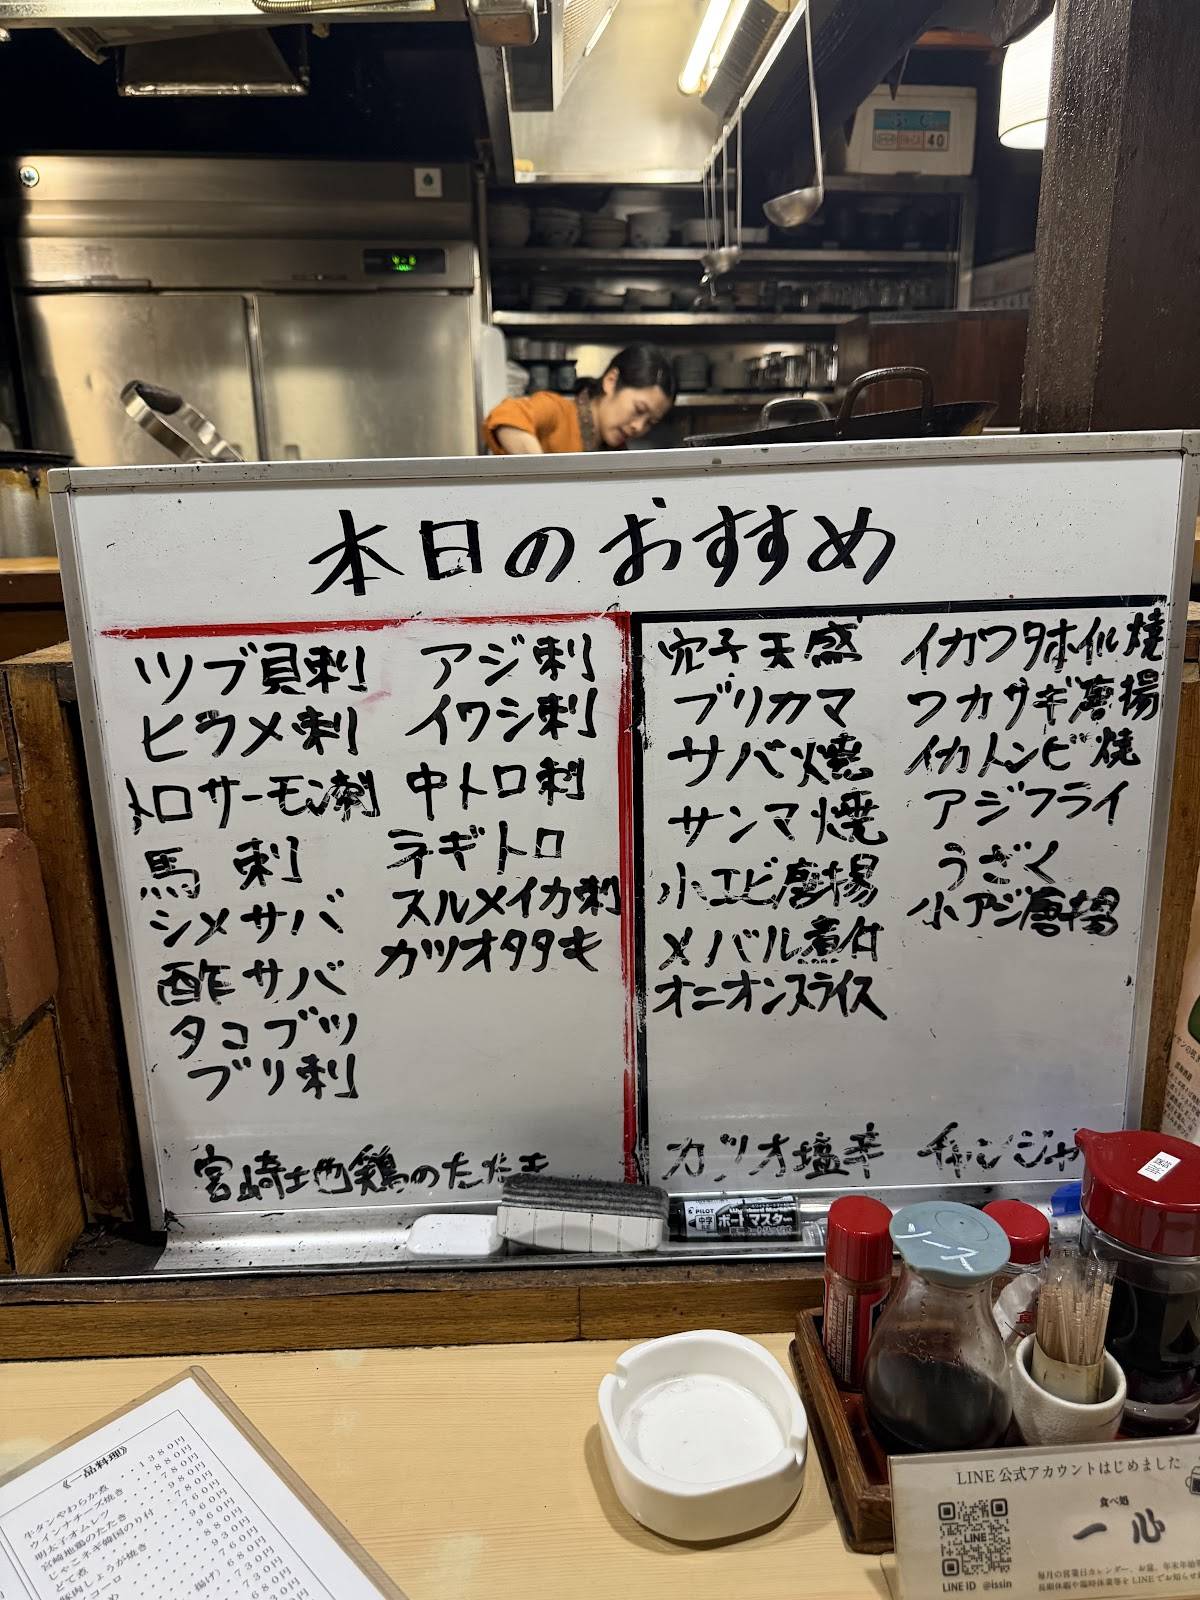 40
本日のおすすめ
ツブ貝刺
ヒラメ刺
トロサーモン刺
馬刺
シメサバ
酢サバ
タコブツ
ブリ刺
アジ刺
イワシ刺
中トロ刺
ネギトロ
スルメイカ刺
カツオタタキ
宮崎地鶏のたたき
穴子天盛
ブリカマ
サバ焼
サンマ焼
小エビ唐揚
メバル煮付
オニオンスライス
イカワタホイル焼
ワカサギ唐揚
イカトンビ焼
アジフライ
うざく
小アジ唐揚
カツオ塩辛
チャンジャ
PILOT
中字
ボードマスター
ソース
《一品料理》
牛タンやわらか煮
ウインナチーズ焼き
明太子オムレツ
宮崎地鶏のたたき
じゃこネギ韓国のり付
どて煮
豚肉しょうが焼き
1380円
880円
980円
780円
LINE公式アカウントはじめました
LINE
食べ処
一心
LINE ID @issin
毎月の営業日カレンダー、お盆、年末年始
長期休暇や臨時休業等をLINEでお知らせ